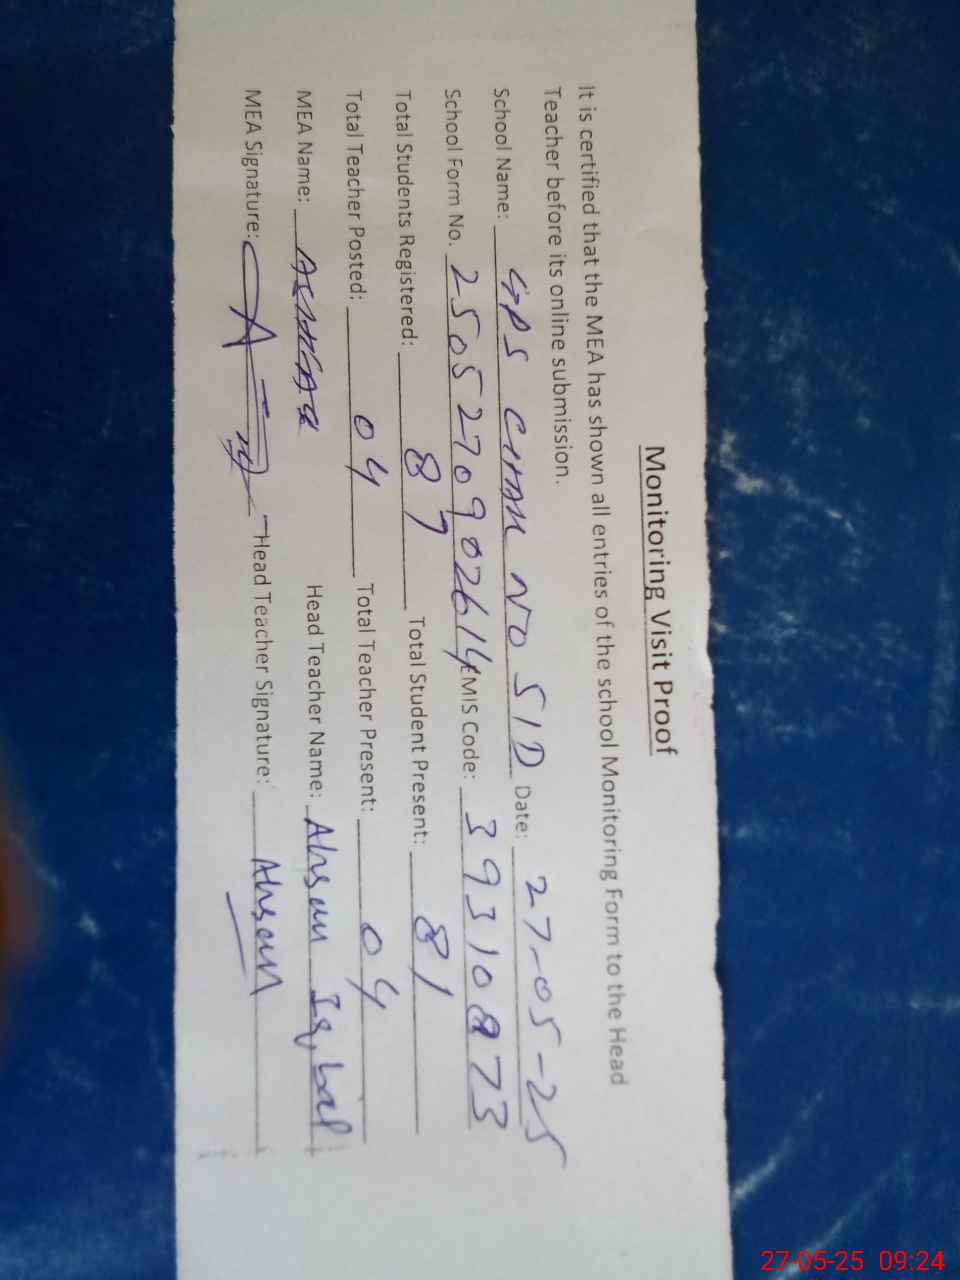 Monitoring Visit Proof
It is certified that the MEA has shown all entries of the school Monitoring Form to the Head
Teacher before its online submission.
School Name: GPS CHAK NO 51D Date: 27-05-25
School Form No. 2505270902614 EMIS Code: 39310873
Total Students Registered: 89 Total Student Present: 81
Total Teacher Posted: 04 Total Teacher Present: 04
MEA Name: Head Teacher Name: Ahsan Iqbal
MEA Signature: Head Teacher Signature: Ahsan
27-05-25 09:24